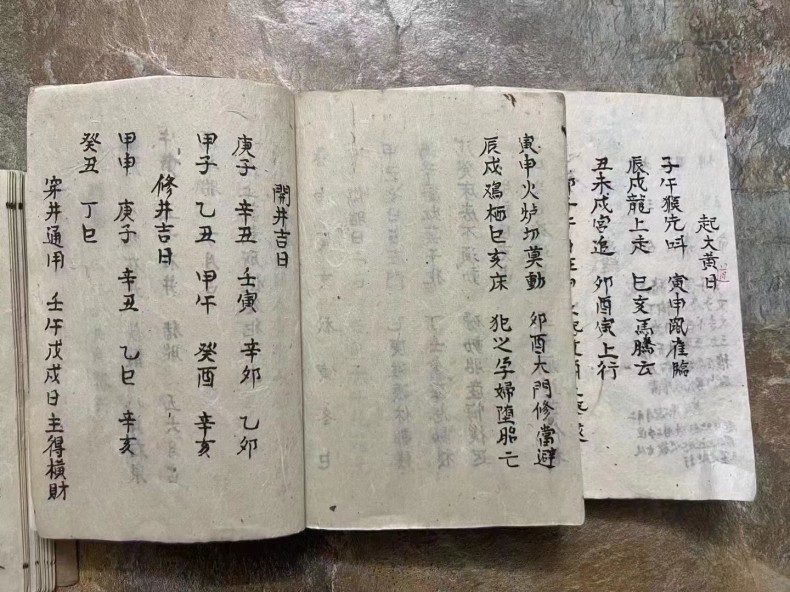 起大黃日
道
子午猴元叫 寅申鼠雀臨
辰戌龍上走 巳亥馬騰云
丑未戌宮追 卯酉寅上行
寅申火炉切莫動 卯酉大門修當避
辰戌鷄栖巳亥床 犯之孕婦墮胎亡
開井吉日
庚子 辛丑 壬寅 辛卯 乙卯
甲子 乙丑 甲午 癸酉 辛亥
修井吉日
甲申 庚子 辛丑 乙巳 辛亥
癸丑 丁巳
穿井通用 壬午戊戌日主得橫財